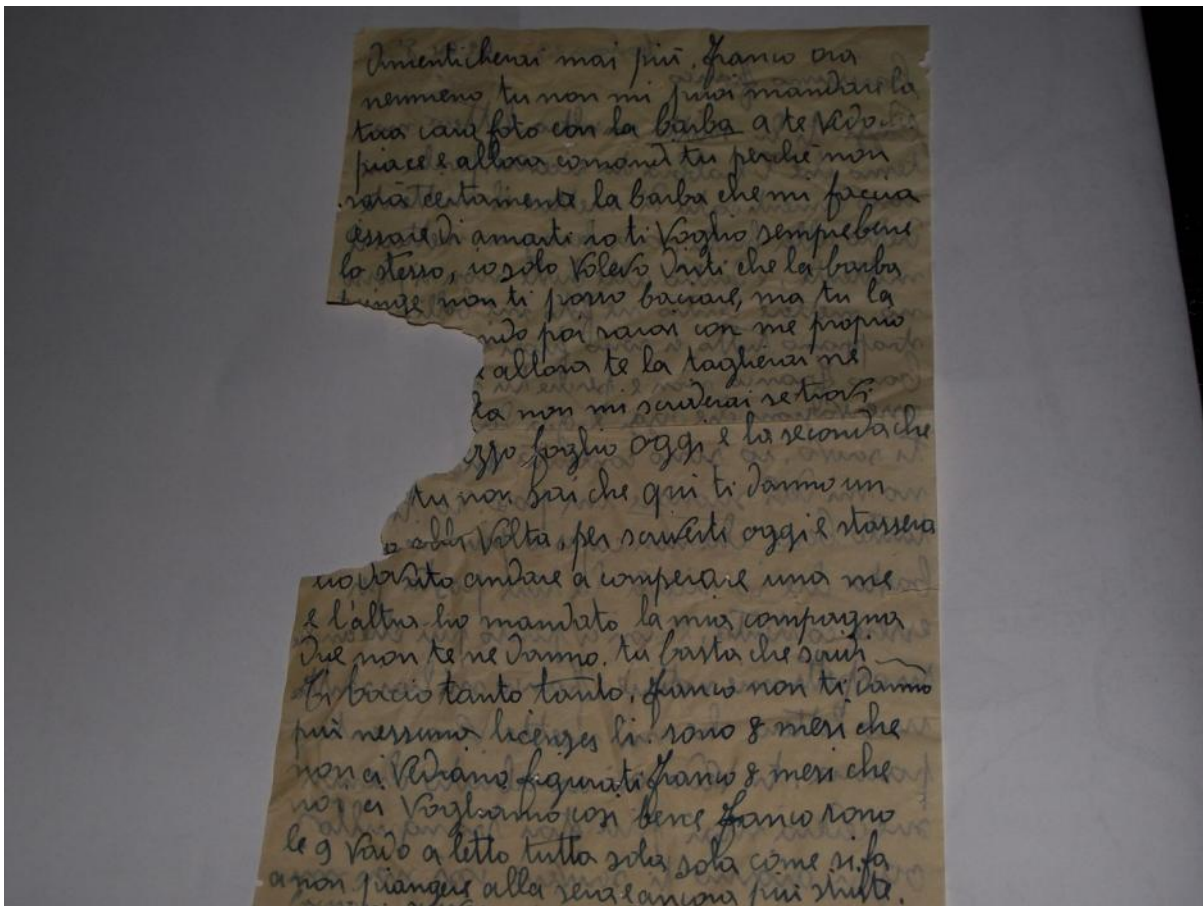 dimenticherai mai più. Franco ora
nemmeno tu non mi puoi mandare la
tua cara foto con la barba a te vedo
piace e allora comandi tu perché non
sarà certamente la barba che mi faccia
cessare di amarti io ti Voglio semprebene
lo stesso, io solo Volevo dirti che la barba
lunga non ti posso baciare, ma tu la
ndo poi sarai con me proprio
allora te la taglierai ne
la non mi scriverai se trovi
zzo foglio oggi e la seconda che
tu non sai che qui ti danno un
alla Volta, per scriverti oggi e stassera
dovuto andare a comperare una me
e l'altra ho mandato la mia compagna
due non te ne danno. tu basta che scrivi
Ti bacio tanto tanto, Franco non ti danno
più nessuna licenza li. sono 8 mesi che
non ci Vediamo figurati Franco 8 mesi che
noi ci Vogliamo cosi bene Franco sono
le 9 Vado a letto tutta sola sola come si fa
a non piangere alla sera e ancora più triste.